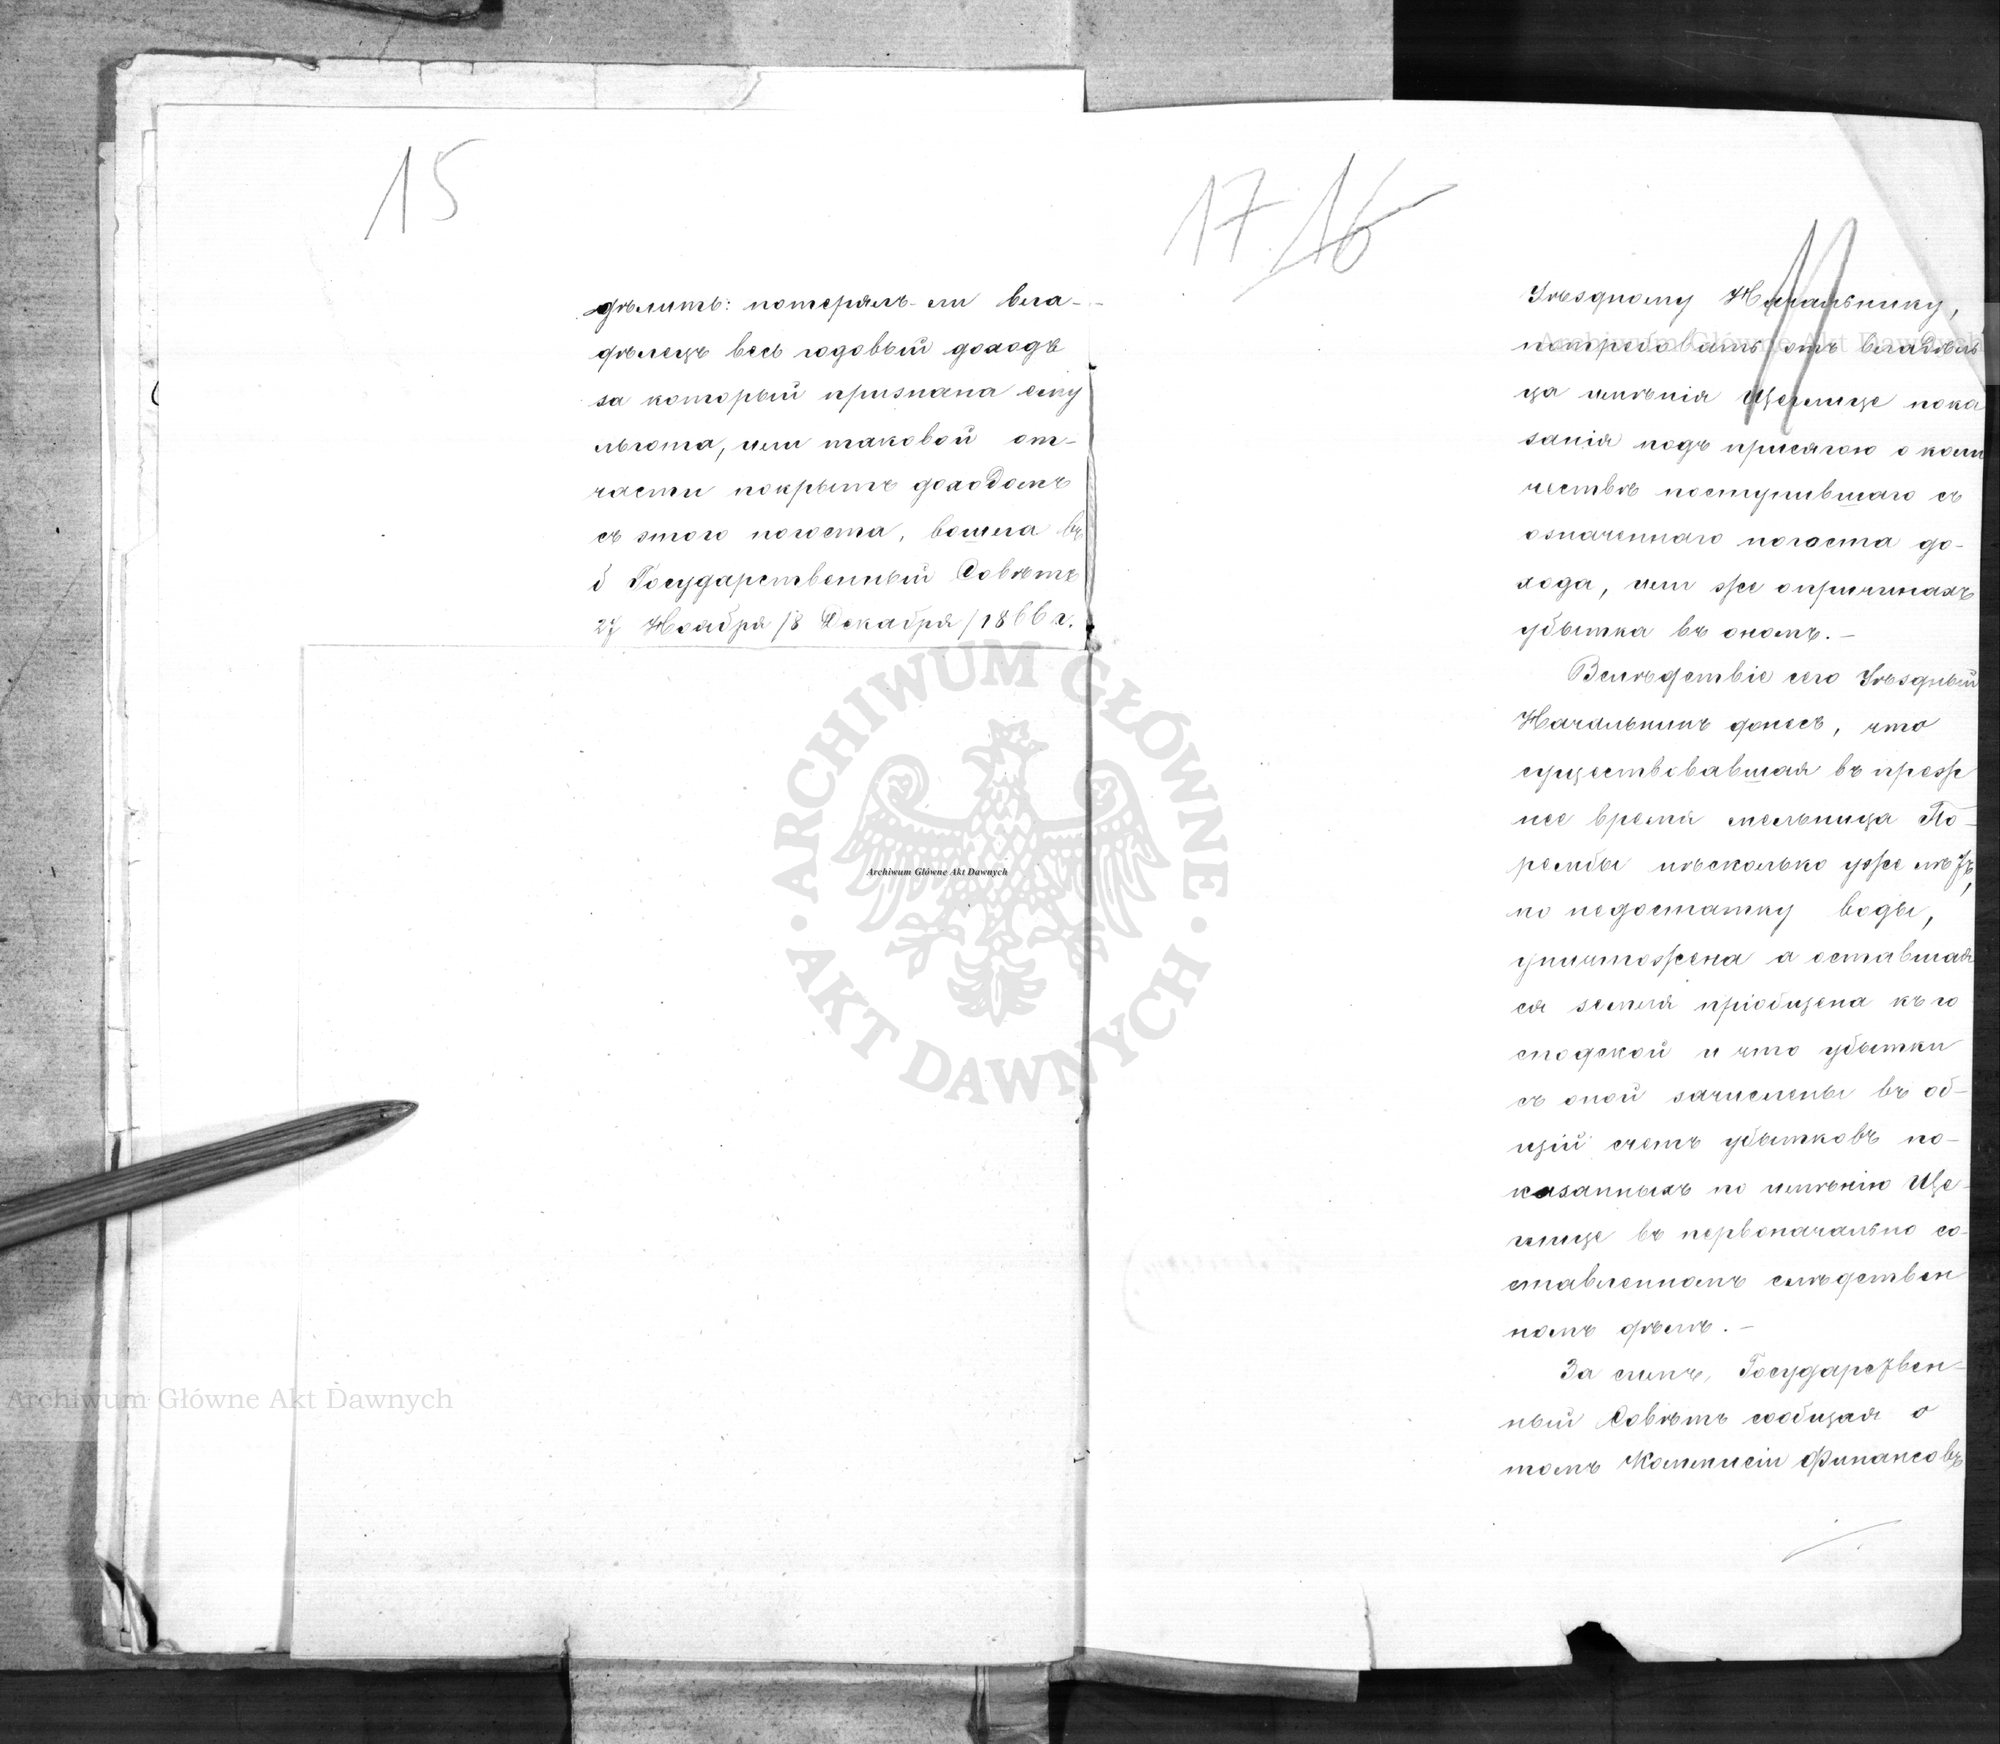 15
дѣлить: потерялъ-ли вла-
дѣлецъ весь годовый доходъ
за который признана ему
льгота, или таковой от-
части покрытъ доходомъ
съ этого погоста, вошла въ
б Государственный Совѣтъ
27 Ноября /8 Декабря/ 1866 г.
17 16
Уѣздному Начальнику,
потребовать отъ владѣль
ца имѣнія Щеглице пока
занія подъ присягою о коли
чествѣ поступившаго съ
означеннаго погоста до-
хода, или же о причинахъ
убытка въ ономъ.—
Вслѣдствіе сего Уѣздный
Начальникъ донесъ, что
существовавшая въ преж
нее время мельница По-
рембы нѣсколько уже лѣтъ,
по недостатку воды,
уничтожена а оставшая
ся земля пріобщена къ го
сподской и что убытки
съ оной зачислены въ об-
щій счетъ убытковъ по-
казанныхъ по имѣнію Ще-
глице въ первоначально со-
ставленномъ слѣдствен
номъ дѣлѣ.—
За симъ, Государствен-
ный Совѣтъ сообщая о
томъ Коммисіи Финансовъ
Archiwum Główne Akt Dawnych
ARCHIWUM GŁÓWNE AKT DAWNYCH
Archiwum Główne Akt Dawnych
Archiwum Główne Akt Dawnych